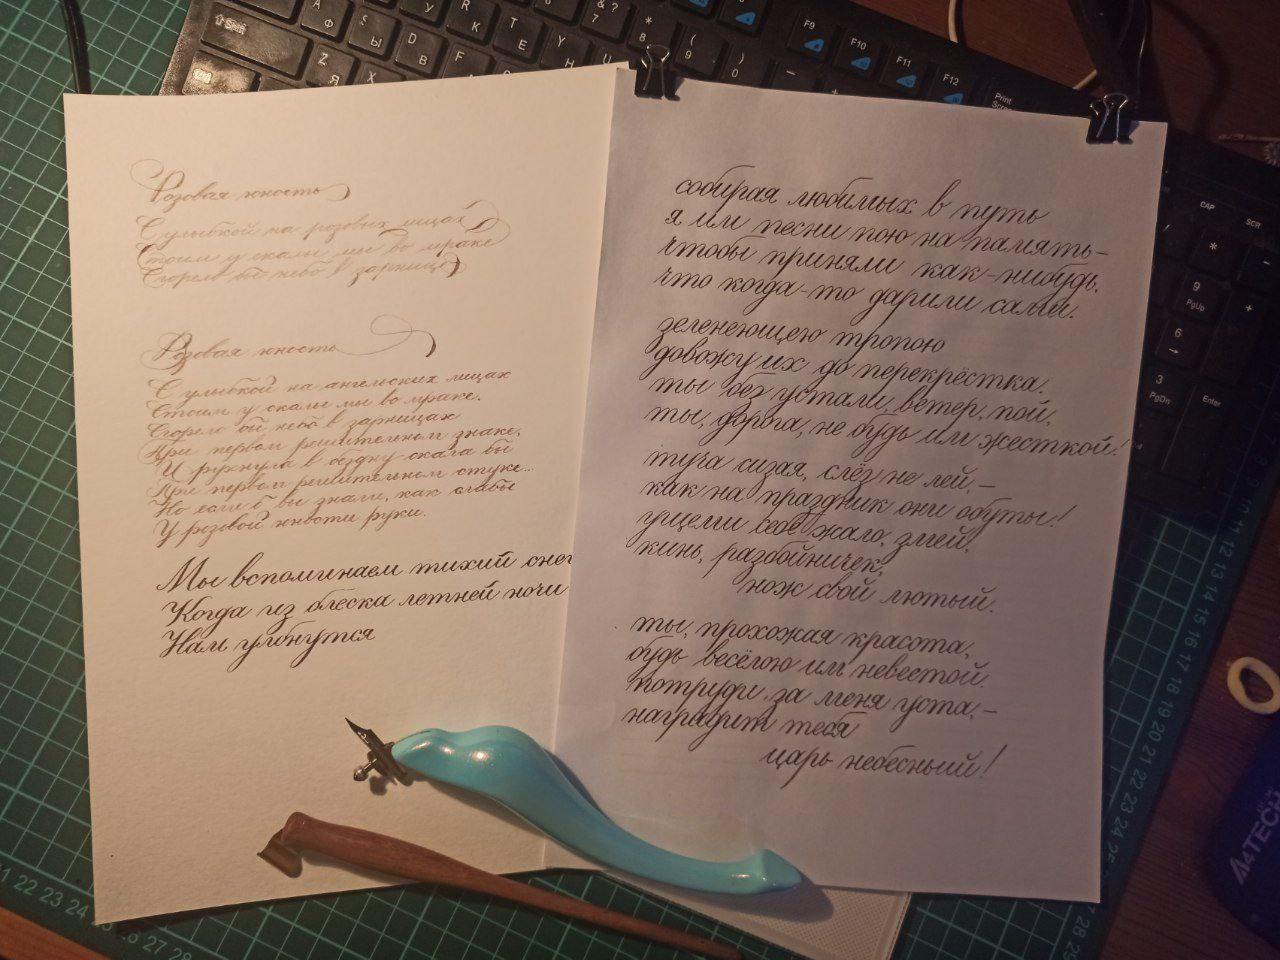 Розовая юность
С улыбкой на розовых лицах
Стоим у скалы мы во мраке
Сгорело бы небо в зарнице
Розовая юность
С улыбкой на ангельских лицах
Стоим у скалы мы во мраке.
Сгорело бы небо в зарницах
При первом решительном знаке,
И рухнула в бездну скала бы
При первом решительном стуке...
Но если б вы знали, как слабы
У розовой юности руки.
Мы вспоминаем тихий снег
Когда из блеска летней ночи
Нам улбнутся
собирая любимых в путь
я им песни пою на память-
чтобы приняли как-нибудь,
что когда-то дарили сами.
зеленеющею тропою
довожу их до перекрёстка.
ты без устали, ветер, пой,
ты, дорога, не будь им жесткой!
туча сизая, слёз не лей,-
как на праздник они обуты!
ущеми себе жало, змей,
кинь, разбойничек,
нож свой лютый.
ты, прохожая красота,
будь весёлою им невестой.
потруди за меня уста,-
наградит тебя
царь небесный!
Shift
F9
F10
F11
F12
Print
CAP
SCR
9
PgUp
6
3
PgDn
Enter
A4TECH